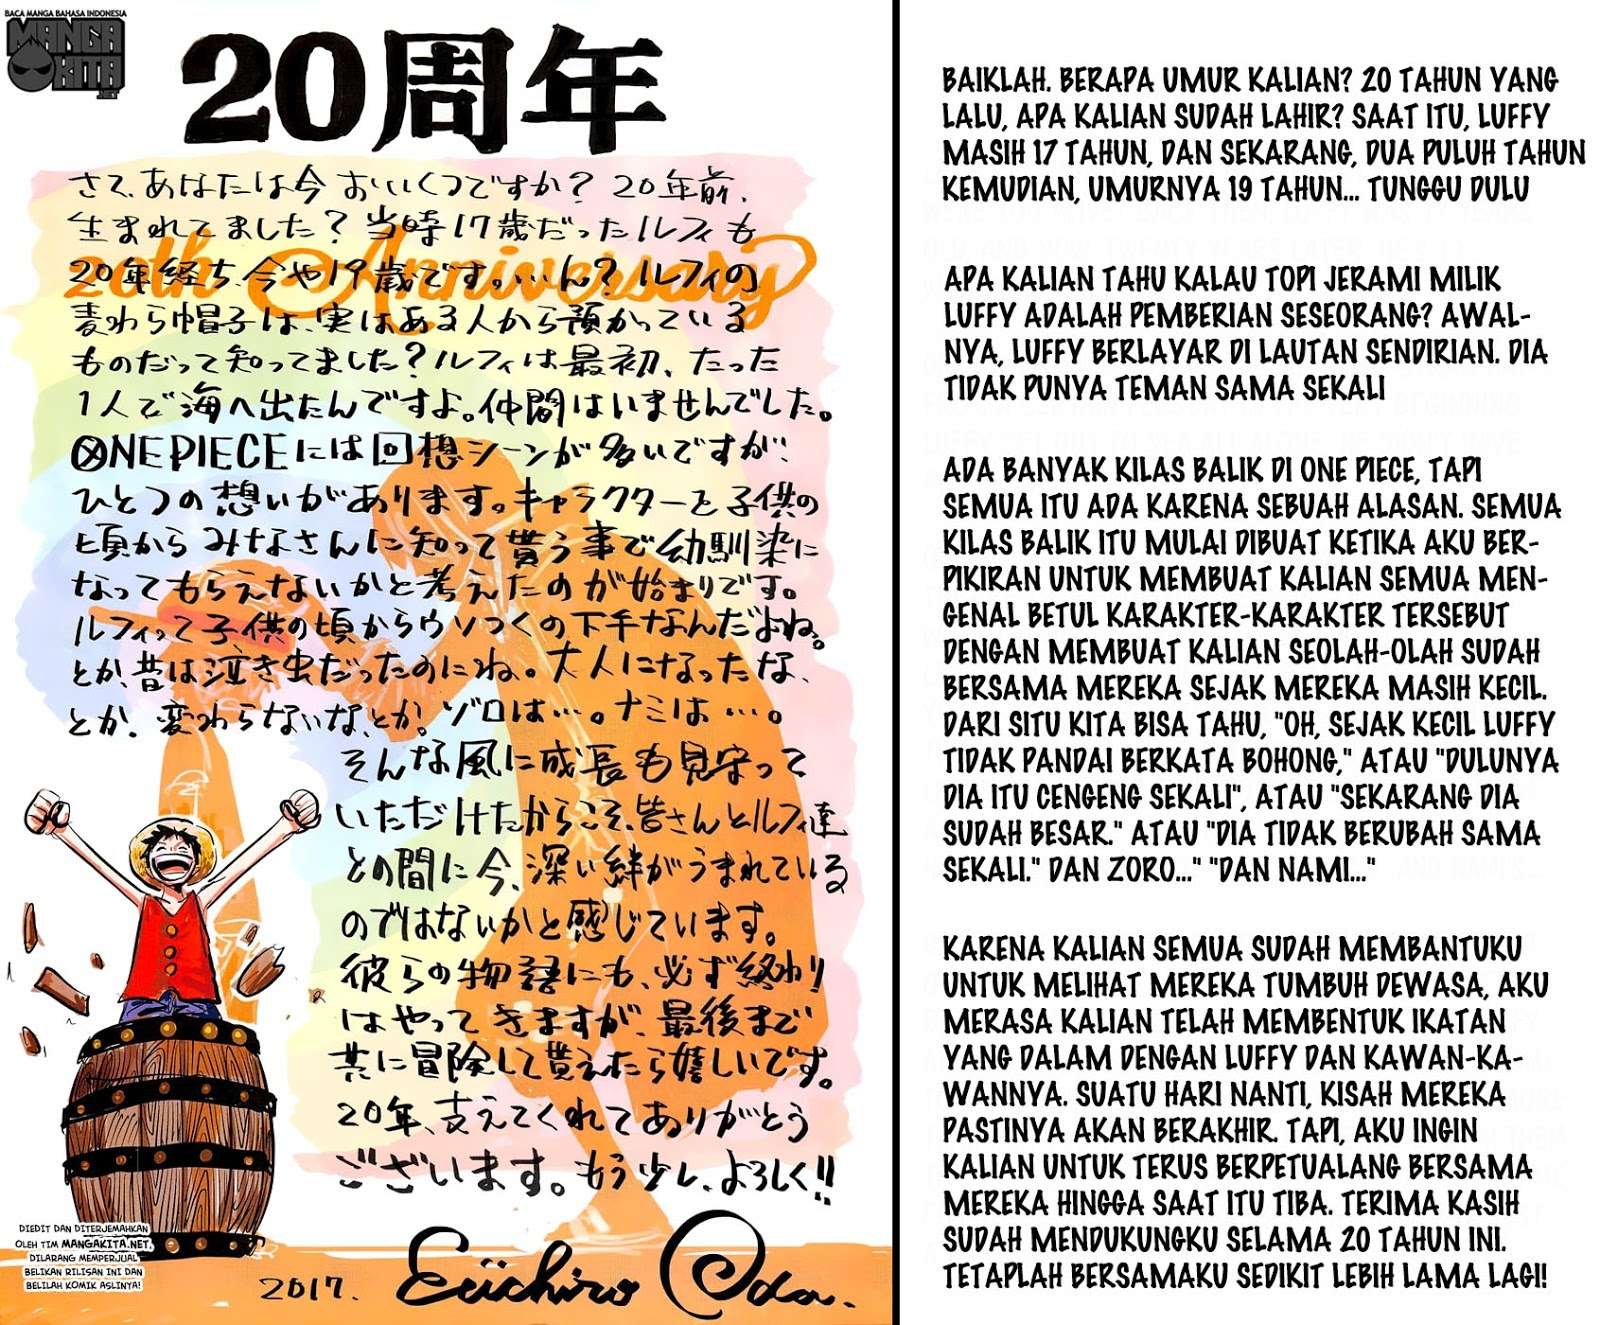 BACA MANGA BAHASA INDONESIA
MANGA
KITA
20周年
20th Anniversary
さて、あなたは今 おいくつですか? 20年前、
生まれてました? 当時17歳だったルフィも
20年経ち、今や19歳です。…ん? ルフィの
麦わら帽子は、実はある人から預かっている
ものだって知ってました? ルフィは最初、たった
1人で海へ出たんですよ。仲間はいませんでした。
ONE PIECEには回想シーンが多いですが、
ひとつの想いがあります。キャラクターを子供の
頃からみなさんに知って貰う事で幼馴染に
なってもらえないかと考えたのが始まりです。
ルフィって子供の頃からウソつくの下手なんだよね。
とか、昔は泣き虫だったのにね。大人になったな、
とか、変わらないな、とか。ゾロは…。ナミは…。
そんな風に成長も見守って
いただけたからこそ、皆さんとルフィ達
との間に今、深い絆がうまれている
のではないかと感じています。
彼らの物語にも、必ず終わり
はやってきますが、最後まで
共に冒険して貰えたら嬉しいです。
20年、支えてくれてありがとう
ございます。もう少し、よろしく!!
2017. Eiichiro Oda.
DIEDIT DAN DITERJEMAHKAN
OLEH TIM MANGAKITA.NET.
DILARANG MEMPERJUAL
BELIKAN RILISAN INI DAN
BELILAH KOMIK ASLINYA!
BAIKLAH. BERAPA UMUR KALIAN? 20 TAHUN YANG
LALU, APA KALIAN SUDAH LAHIR? SAAT ITU, LUFFY
MASIH 17 TAHUN, DAN SEKARANG, DUA PULUH TAHUN
KEMUDIAN, UMURNYA 19 TAHUN... TUNGGU DULU
APA KALIAN TAHU KALAU TOPI JERAMI MILIK
LUFFY ADALAH PEMBERIAN SESEORANG? AWAL-
NYA, LUFFY BERLAYAR DI LAUTAN SENDIRIAN. DIA
TIDAK PUNYA TEMAN SAMA SEKALI
ADA BANYAK KILAS BALIK DI ONE PIECE, TAPI
SEMUA ITU ADA KARENA SEBUAH ALASAN. SEMUA
KILAS BALIK ITU MULAI DIBUAT KETIKA AKU BER-
PIKIRAN UNTUK MEMBUAT KALIAN SEMUA MEN-
GENAL BETUL KARAKTER-KARAKTER TERSEBUT
DENGAN MEMBUAT KALIAN SEOLAH-OLAH SUDAH
BERSAMA MEREKA SEJAK MEREKA MASIH KECIL.
DARI SITU KITA BISA TAHU, "OH, SEJAK KECIL LUFFY
TIDAK PANDAI BERKATA BOHONG," ATAU "DULUNYA
DIA ITU CENGENG SEKALI", ATAU "SEKARANG DIA
SUDAH BESAR." ATAU "DIA TIDAK BERUBAH SAMA
SEKALI." DAN ZORO..." "DAN NAMI..."
KARENA KALIAN SEMUA SUDAH MEMBANTUKU
UNTUK MELIHAT MEREKA TUMBUH DEWASA, AKU
MERASA KALIAN TELAH MEMBENTUK IKATAN
YANG DALAM DENGAN LUFFY DAN KAWAN-KA-
WANNYA. SUATU HARI NANTI, KISAH MEREKA
PASTINYA AKAN BERAKHIR. TAPI, AKU INGIN
KALIAN UNTUK TERUS BERPETUALANG BERSAMA
MEREKA HINGGA SAAT ITU TIBA. TERIMA KASIH
SUDAH MENDUKUNGKU SELAMA 20 TAHUN INI.
TETAPLAH BERSAMAKU SEDIKIT LEBIH LAMA LAGI!